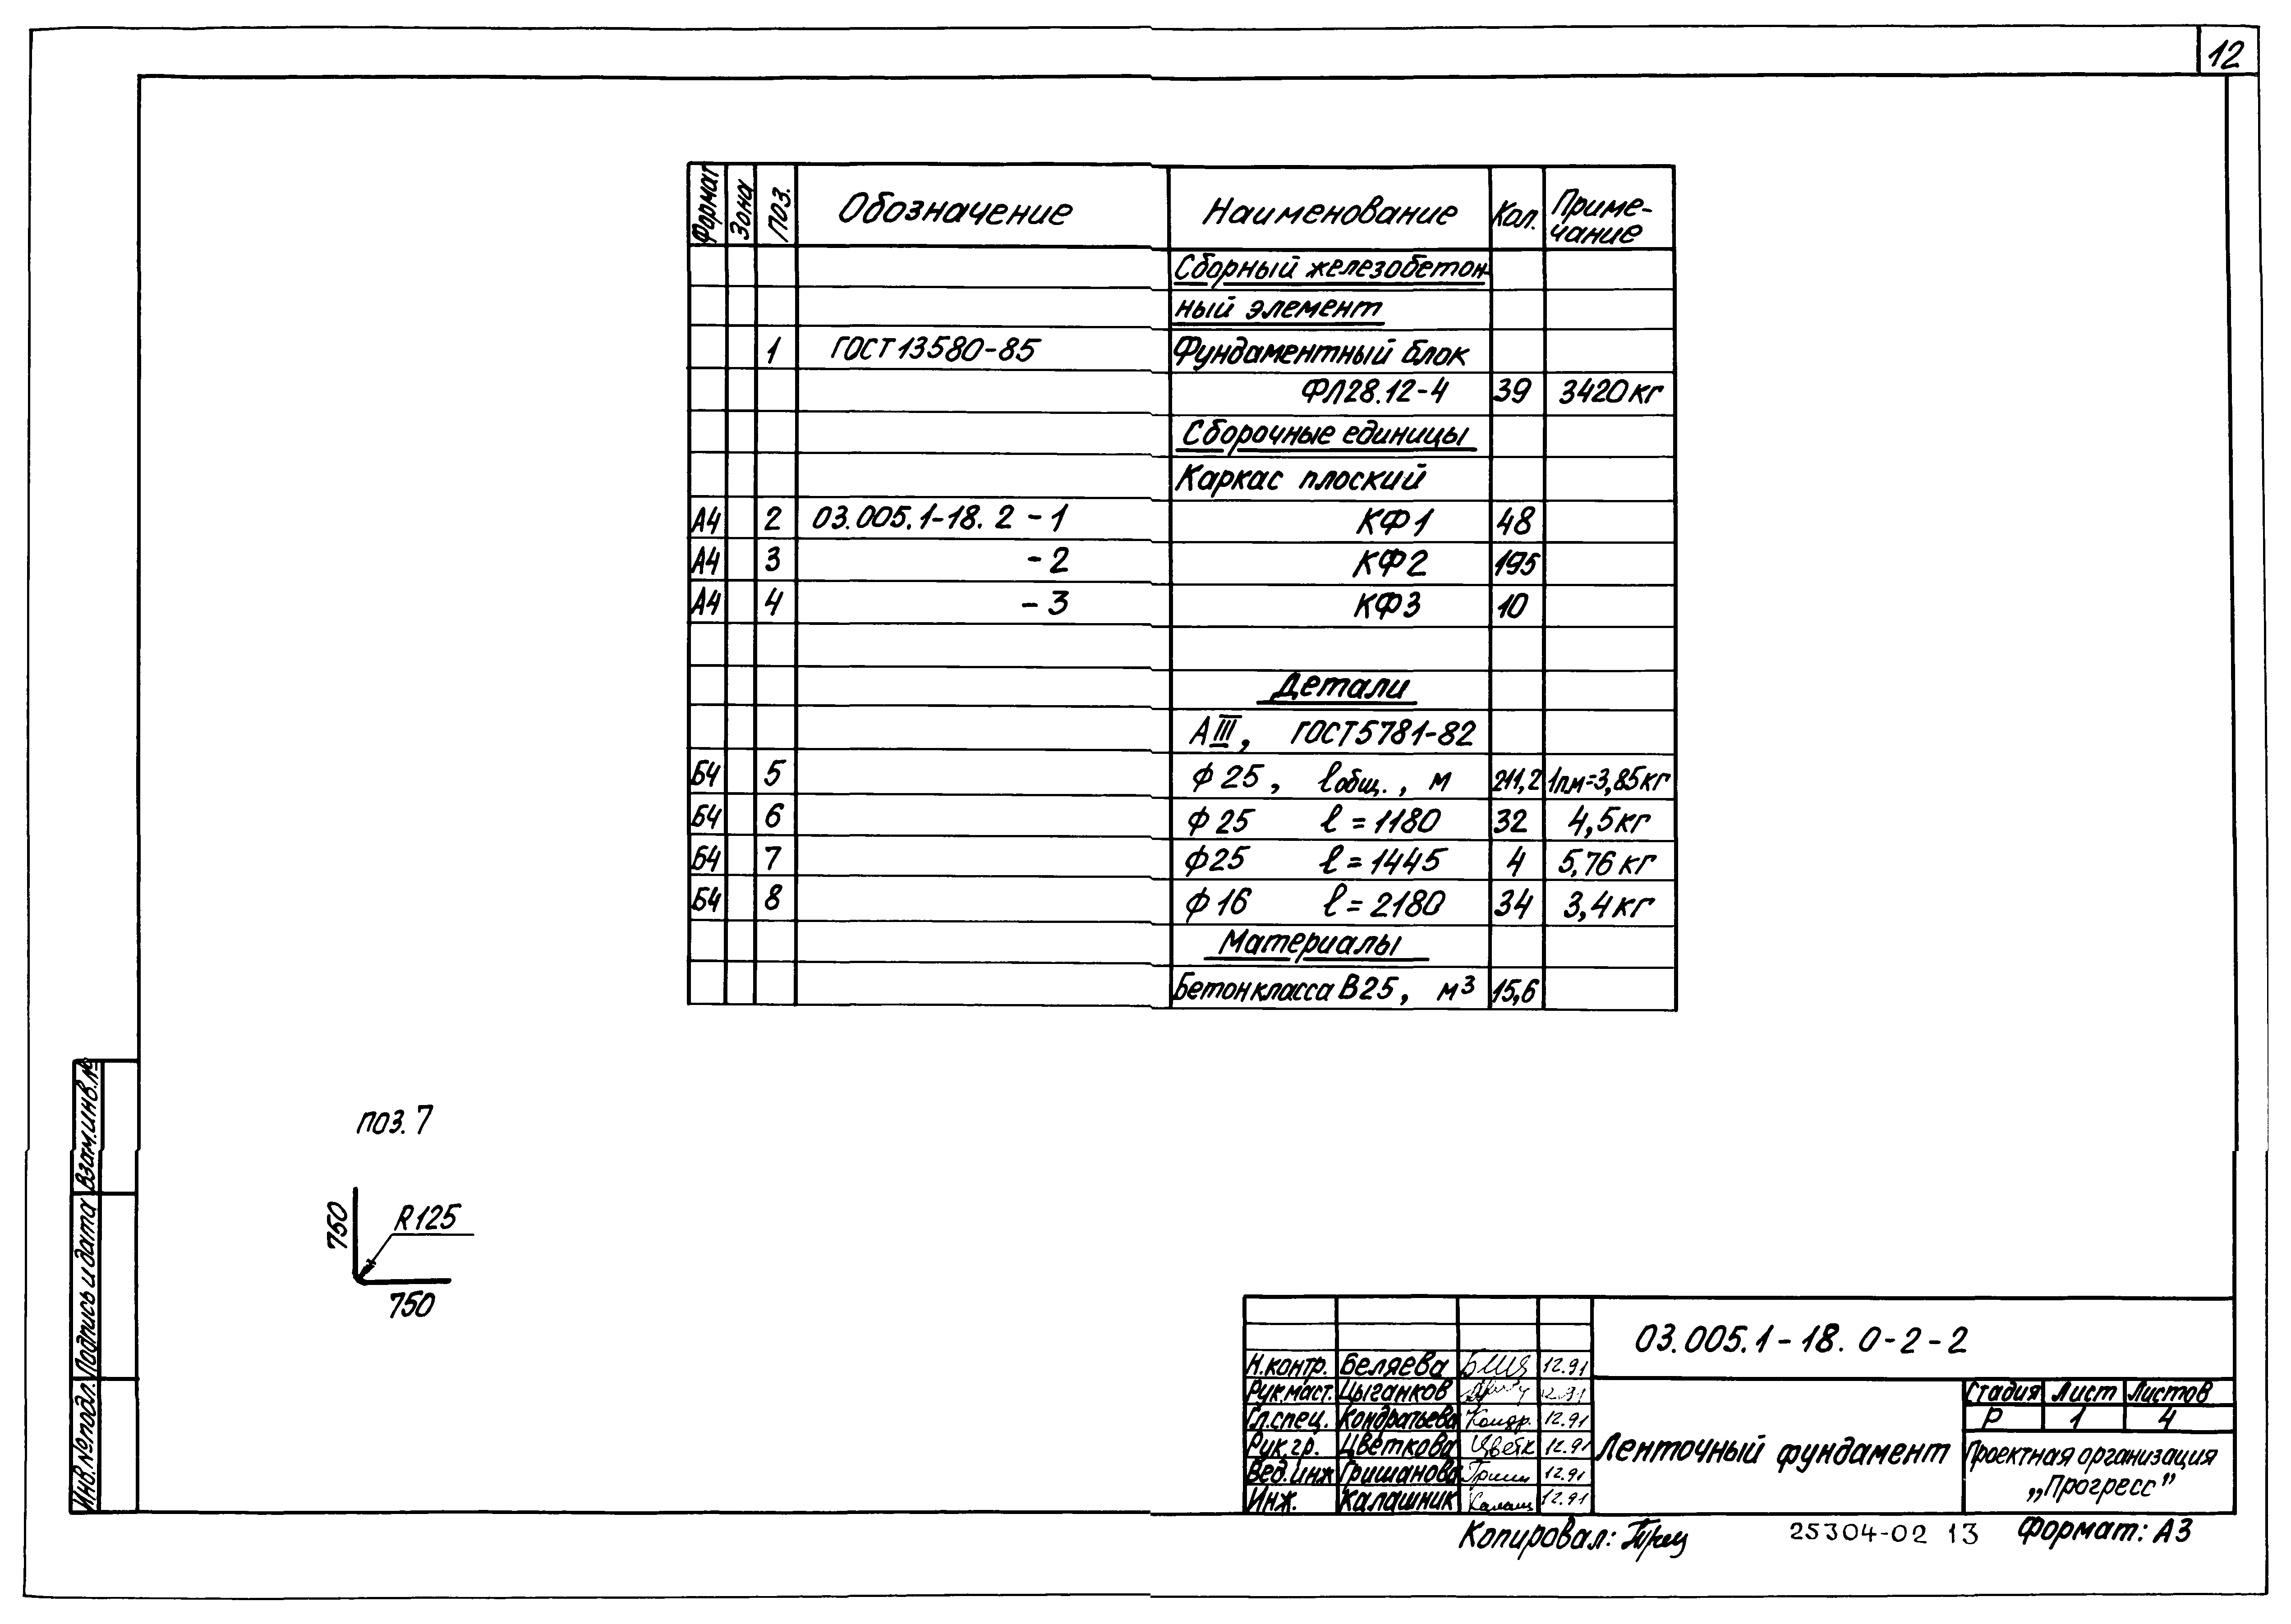 12
Формат Зона Поз. Обозначение Наименование Кол. Приме-
чание
Сборный железобетон-
ный элемент
1 ГОСТ 13580-85 Фундаментный блок
ФЛ28.12-4 39 3420кг
Сборочные единицы
Каркас плоский
А4 2 03.005.1-18. 2 -1 КФ1 48
А4 3 -2 КФ2 195
А4 4 -3 КФ3 10
Детали
АIII, ГОСТ5781-82
Б4 5 ф25, ℓобщ., м 211,2 1пм=3,85кг
Б4 6 ф25 ℓ=1180 32 4,5кг
Б4 7 ф25 ℓ=1445 4 5,76кг
Б4 8 ф16 ℓ=2180 34 3,4кг
Материалы
Бетон класса В25, м³ 15,6
поз. 7
750
R125
750
Взам.инв.№
Подпись и дата
Инв.№подл.
03.005.1-18. 0-2-2
Н.контр. Беляева 12.91
Рук.маст. Цыганков 12.91
Гл.спец. Кондратьева Кондр. 12.91
Рук.гр. Цветкова Цветк 12.91
Вед.инж Гришанова Гриш 12.91
Инж. Калашник Калаш 12.91
Ленточный фундамент
Стадия Лист Листов
Р 1 4
Проектная организация
„Прогресс"
Копировал:
25304-02 13
Формат: А3